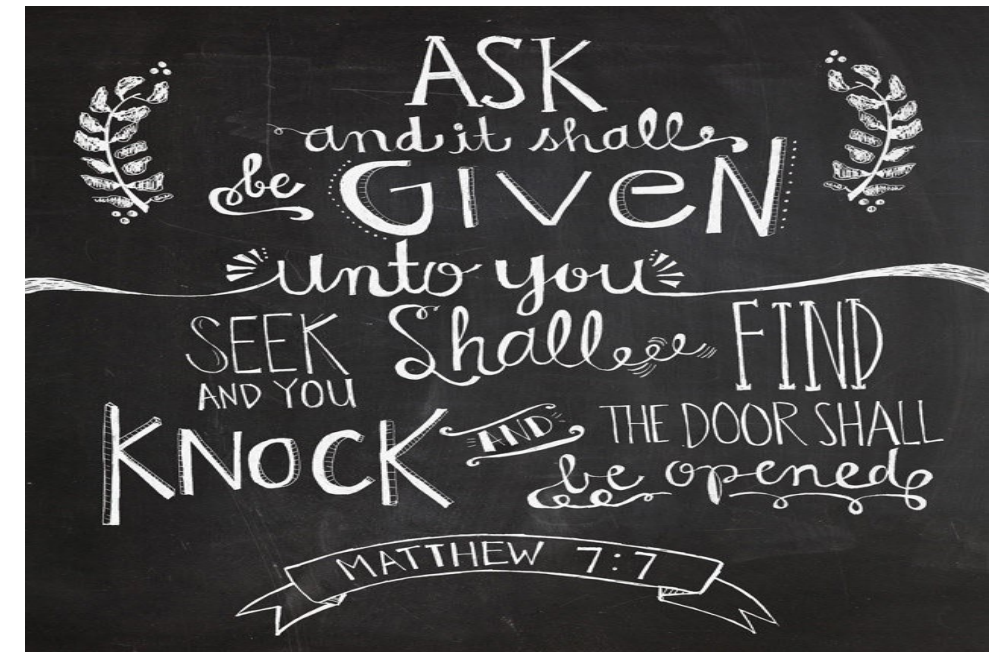 ASK
and it shall
be GIVeN
unto you
SEEK Shall FIND
AND YOU
KNOCK AND THE DOOR SHALL
be opened
MATTHEW 7:7